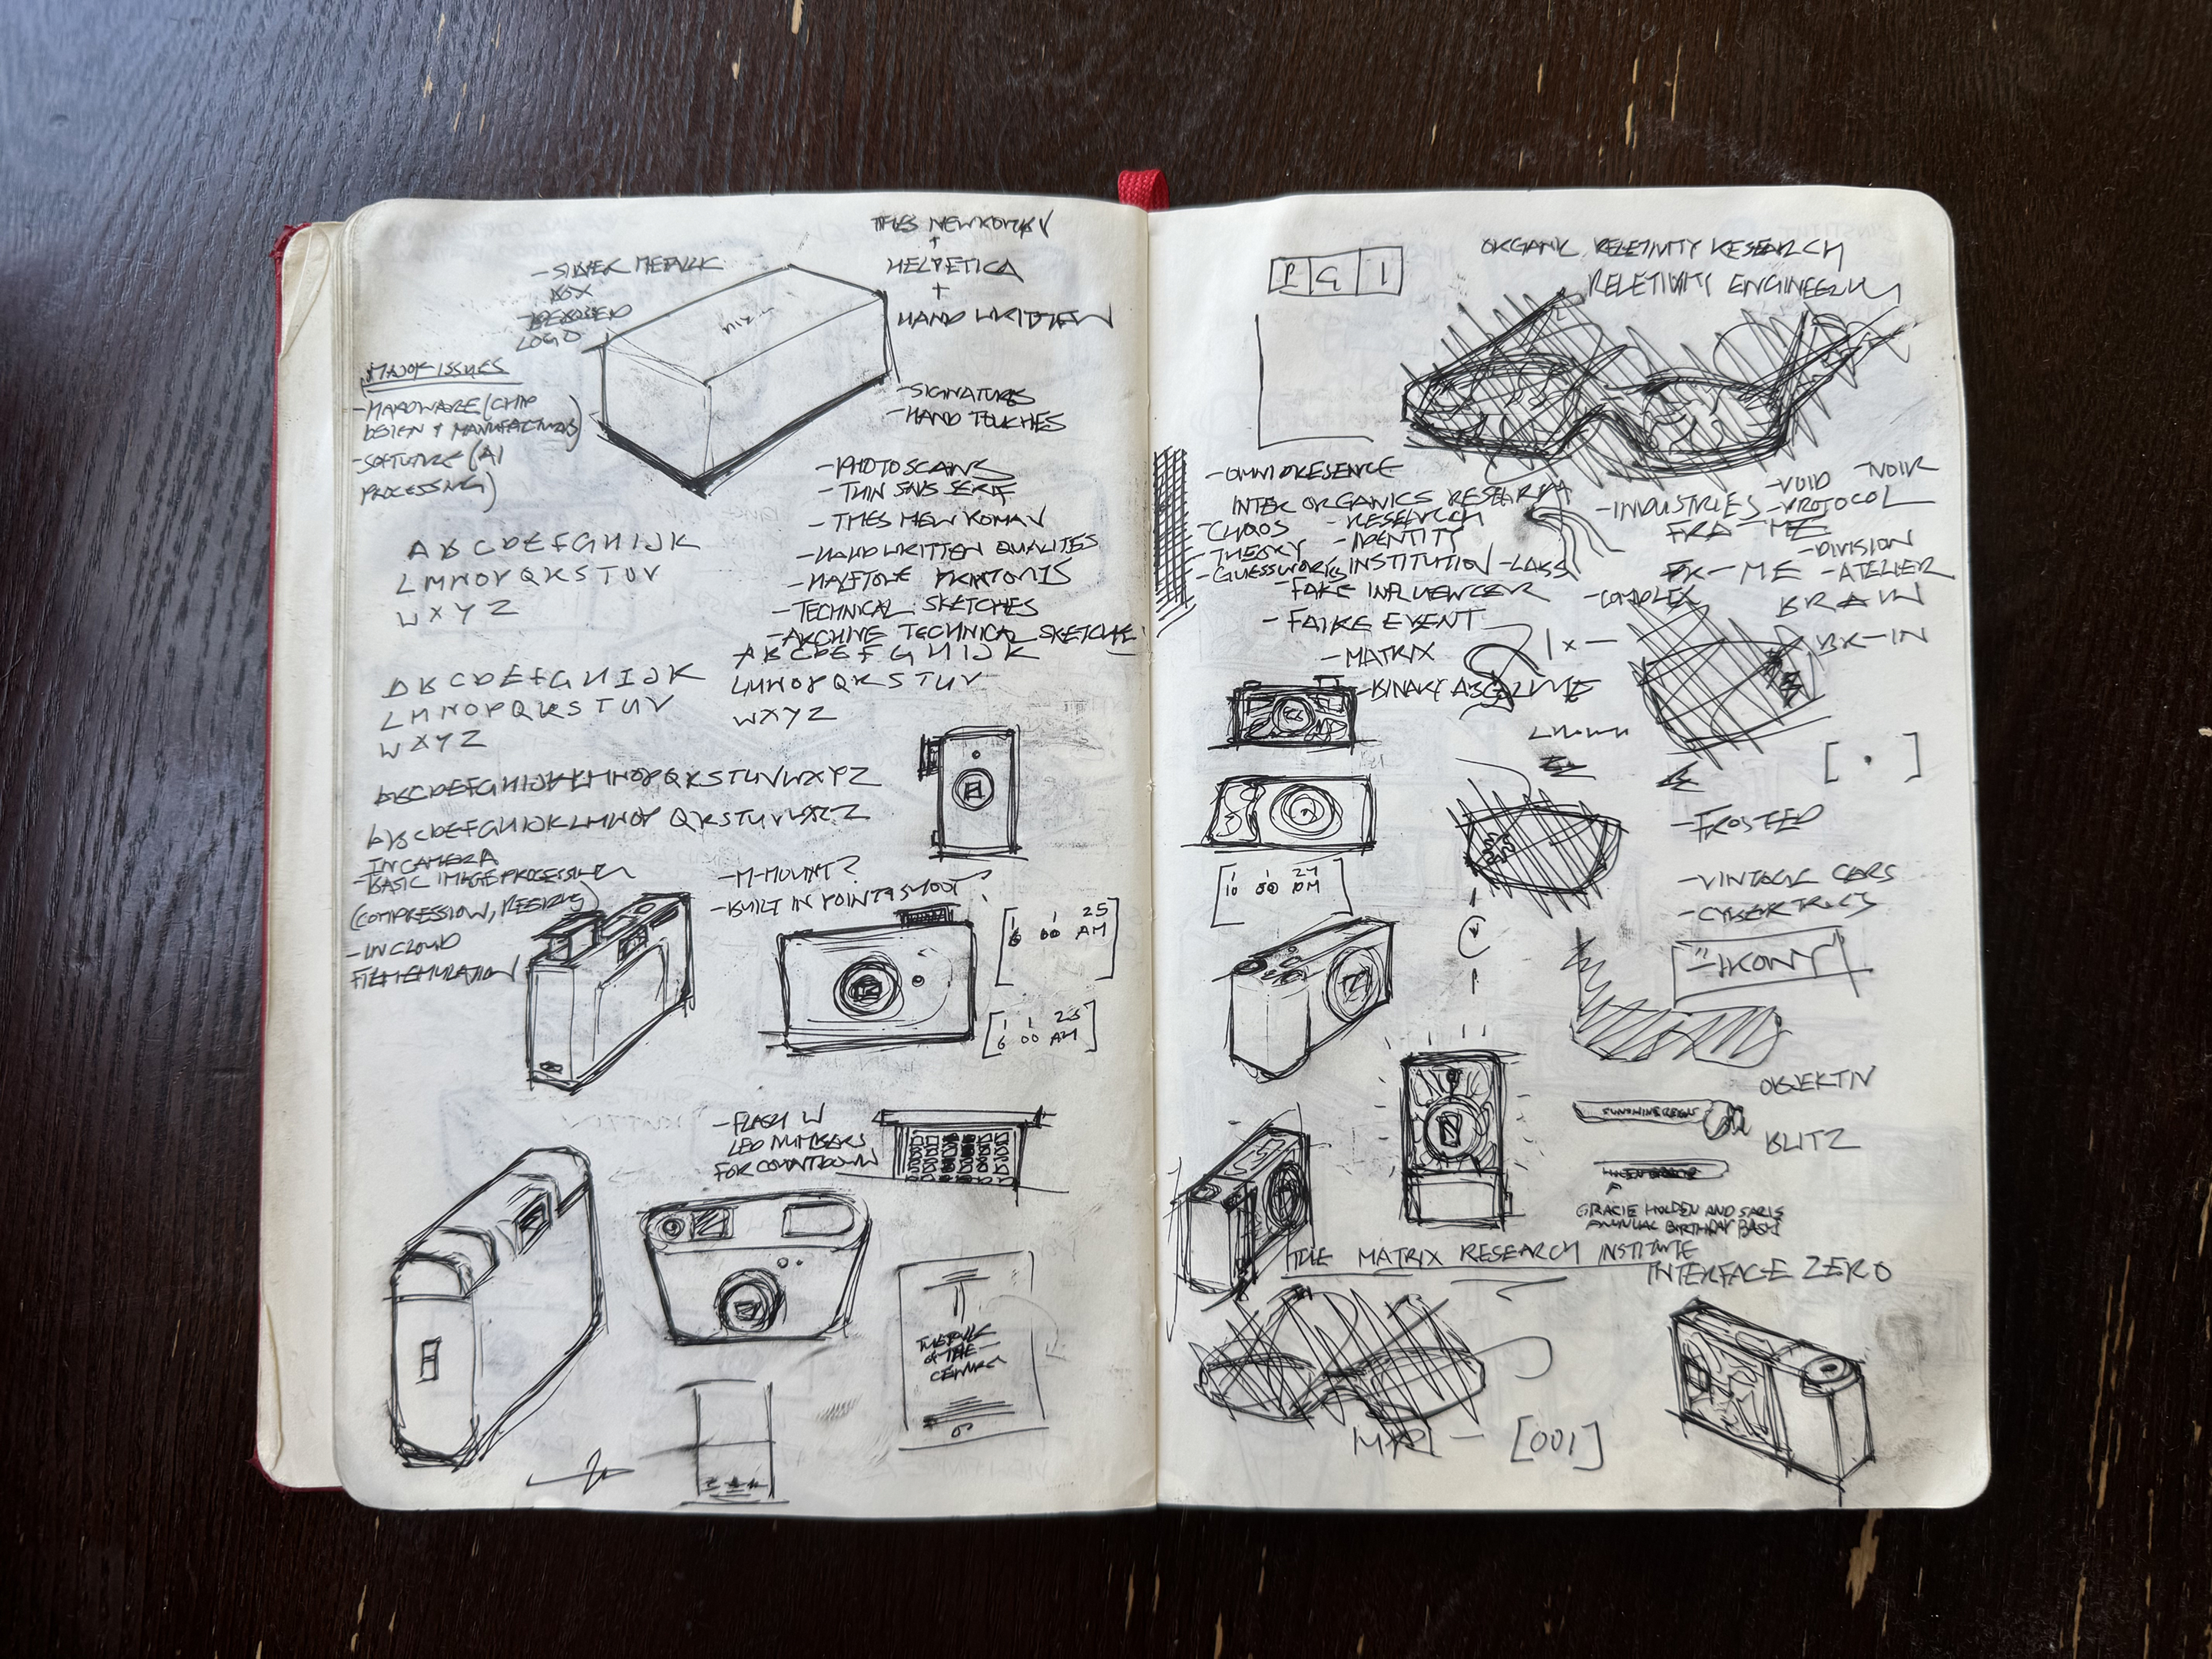 TIMES NEW ROMAN
+
HELVETICA
+
HAND WRITTEN
- SILVER METALLIC
BOX
LOGO
MAJOR ISSUES
- HARDWARE (CHIP
DESIGN & MANUFACTURING)
- SOFTWARE (AI
PROCESSING)
- SIGNATURES
- HAND TOUCHES
- PHOTO SCANS
- THIN SANS SERIF
- TIMES NEW ROMAN
- HAND WRITTEN QUALITES
- HALFTONE
- TECHNICAL SKETCHES
- ARCHIVE TECHNICAL SKETCHE
A B C D E F G H I J K
L M N O P Q R S T U V
W X Y Z
A B C D E F G H I J K
L M N O P Q R S T U V
W X Y Z
A B C D E F G H I J K
L M N O P Q R S T U V
W X Y Z
A B C D E F G H I J K L M N O P Q R S T U V W X Y Z
A B C D E F G H I J K L M N O P Q R S T U V W X Y Z
IN CAMERA
- BASIC IMAGE PROCESSING
(COMPRESSION, RESIZING)
- IN CLOUD
FILM EMULATION
- M-MOUNT?
- BUILT IN POINT & SHOOT?
1 1 25
6 00 AM
1 1 25
6 00 AM
- FLASH W
LED NUMBERS
FOR COUNTDOWN
OF THE
ORGANIC RELETIVITY RESEARCH
RELETIVITY ENGINEERING
- OMNIPRESENCE
INTER ORGANICS RESEARCH
- CHAOS
- THEORY
- GUESSWORKS
- RESEARCH
- IDENTITY
INSTITUTION - LABS
- FAKE INFLUENCER
- FAIKE EVENT
- MATRIX
- BINARY ABSOLUTE
- INDUSTRIES
- VOID - NOIR
- PROTOCOL
FRA - ME
- DIVISION
- ME - ATELIER
- COMPLEX
BRAIN
BR-IN
1 x -
[ . ]
- FROSTED
1 1 24
10 00 PM
- VINTAGE CARS
- CYBERTRUCKS
"-IKONY"
OBJEKTIV
BLITZ
GRACIE HOLDEN AND SARIS
ANNUAL BIRTHDAY BASH
THE MATRIX RESEARCH INSTITUTE
INTERFACE ZERO
MRI - [001]